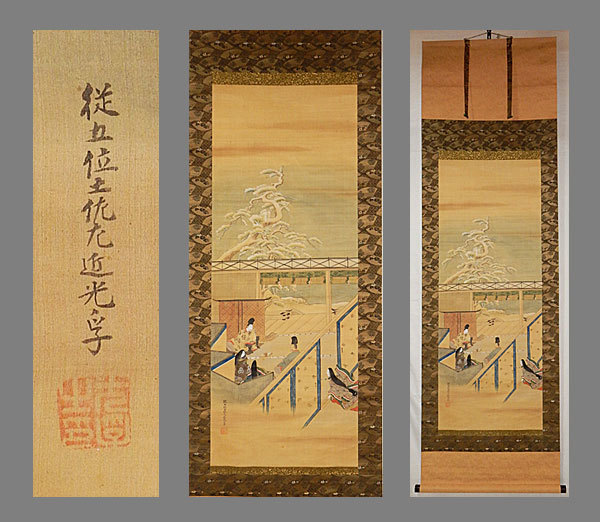 従五位土佐左近光孚